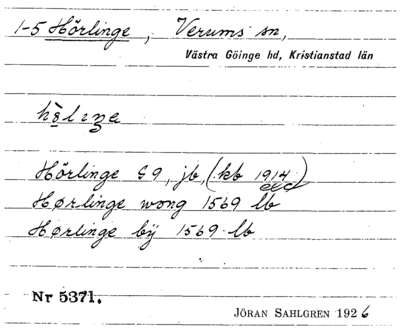 1-5 Hörlinge, Verums sn,
Västra Göinge hd, Kristianstad län
Hörlinge G 9, jb, (kb 1914)
Hørlinge wong 1569 lb
Hørlinge bÿ 1569 lb
Nr 5371.
JÖRAN SAHLGREN 1926